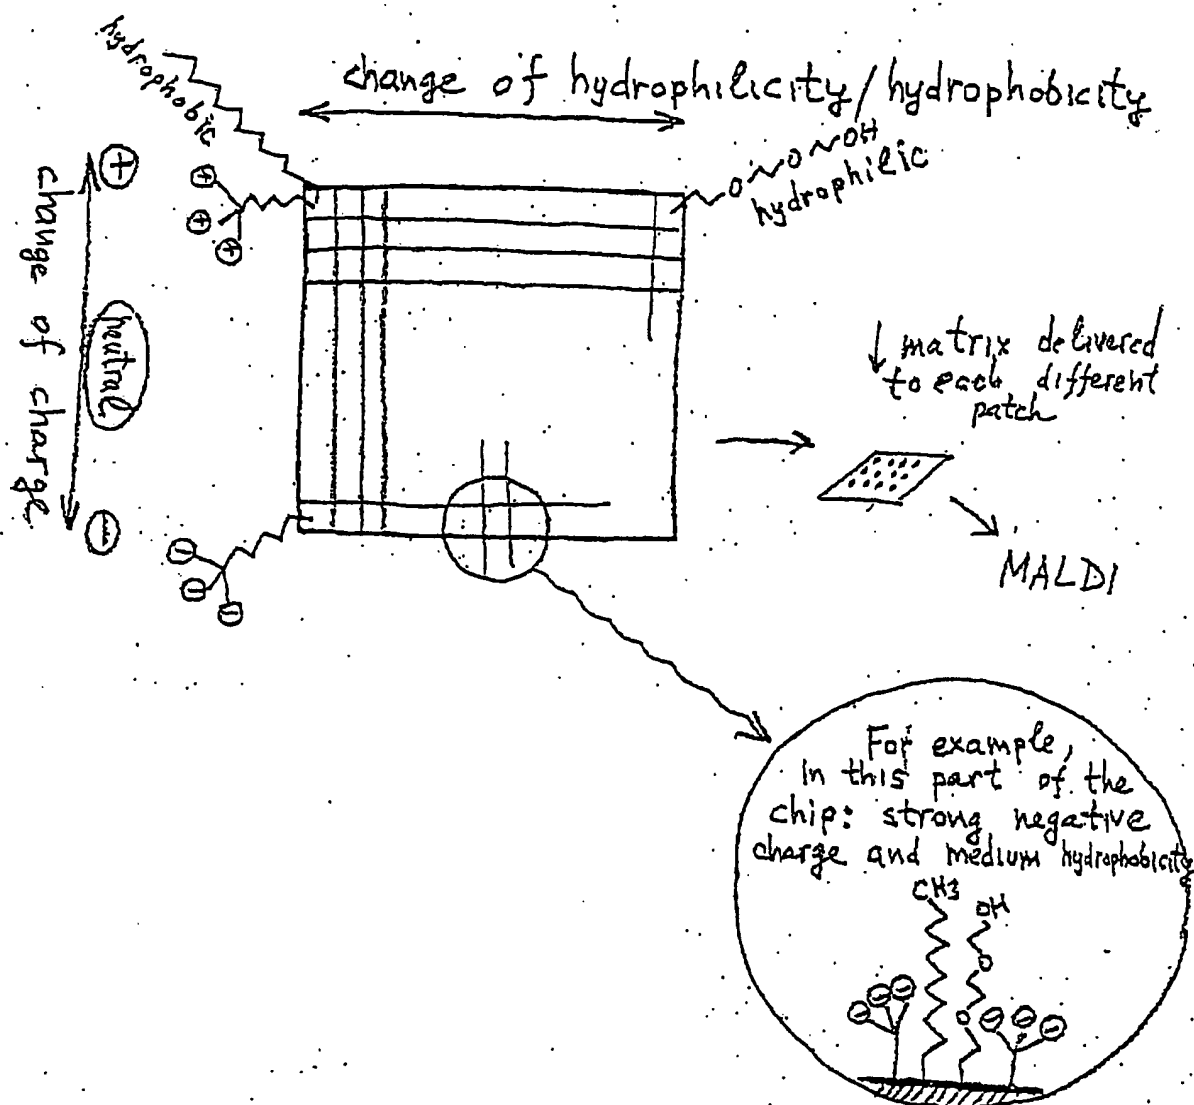 hydrophobic
change of hydrophilicity/hydrophobicity
OH
O
O
hydrophilic
+
+
+
+
change of charge
neutral
-
-
-
-
matrix delivered
to each different
patch
MALDI
For example,
in this part of the
chip: strong negative
charge and medium hydrophobicity
CH3
OH
O
O
-
-
-
-
-
-